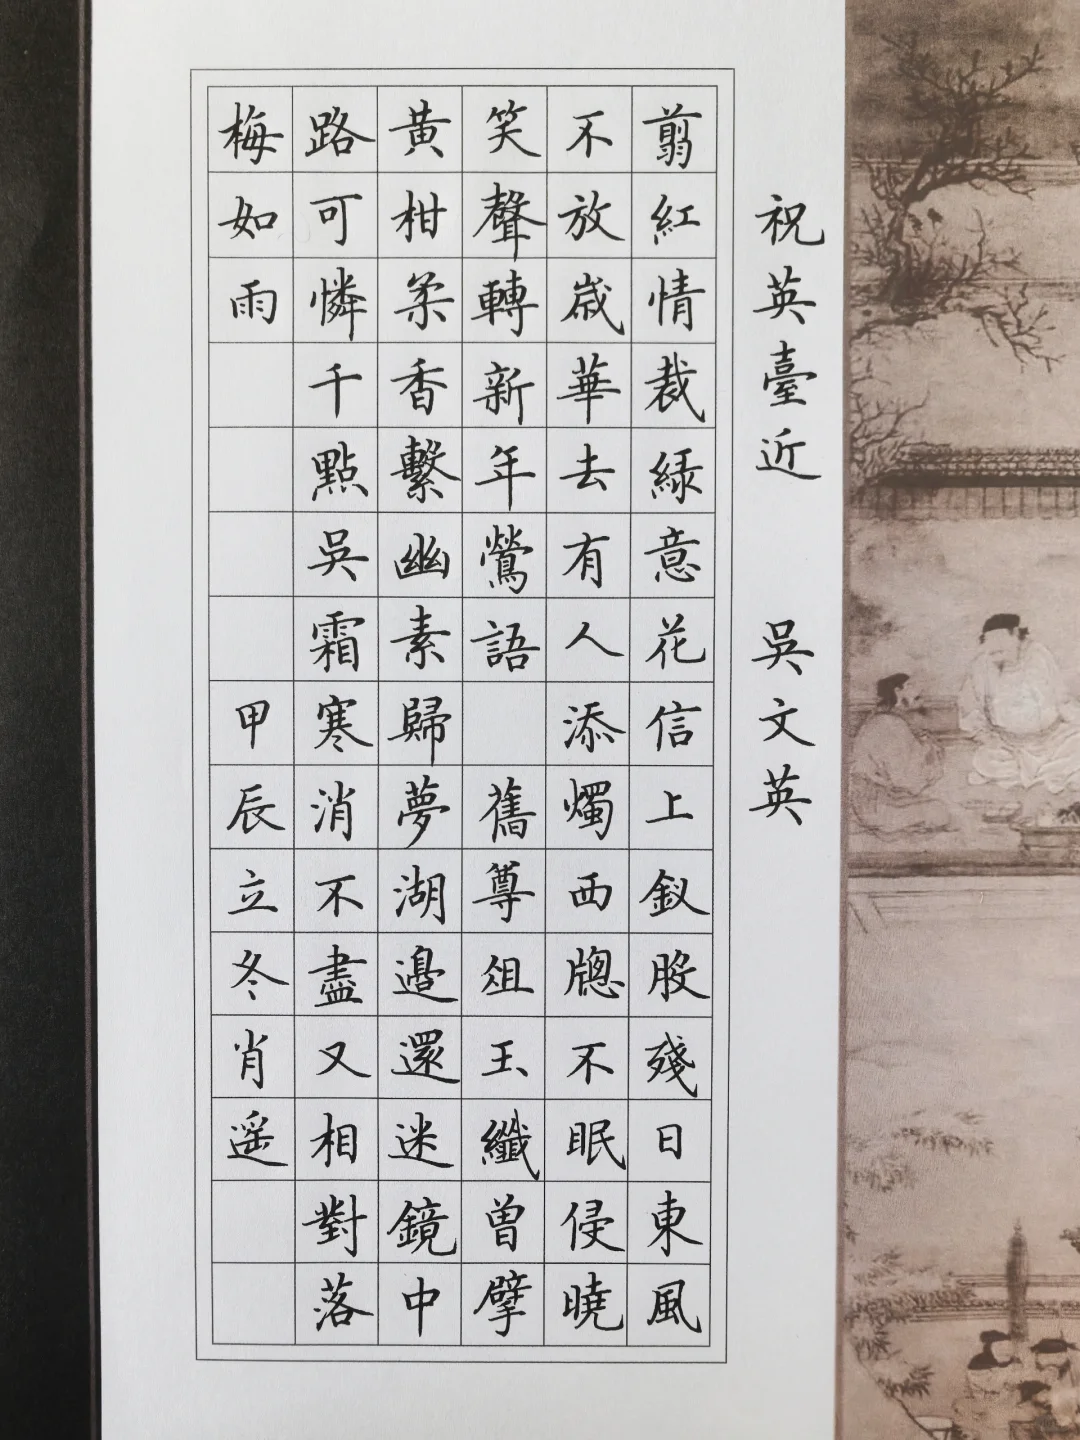 祝英臺近 吳文英
翦紅情裁綠意花信上釵股殘日東風
不放歲華去有人添燭西牕不眠侵曉
笑聲轉新年鶯語 舊尊俎玉纖曾擘
黃柑柔香繫幽素歸夢湖邊還迷鏡中
路可憐千點吳霜寒消不盡又相對落
梅如雨 甲辰立冬肖遥